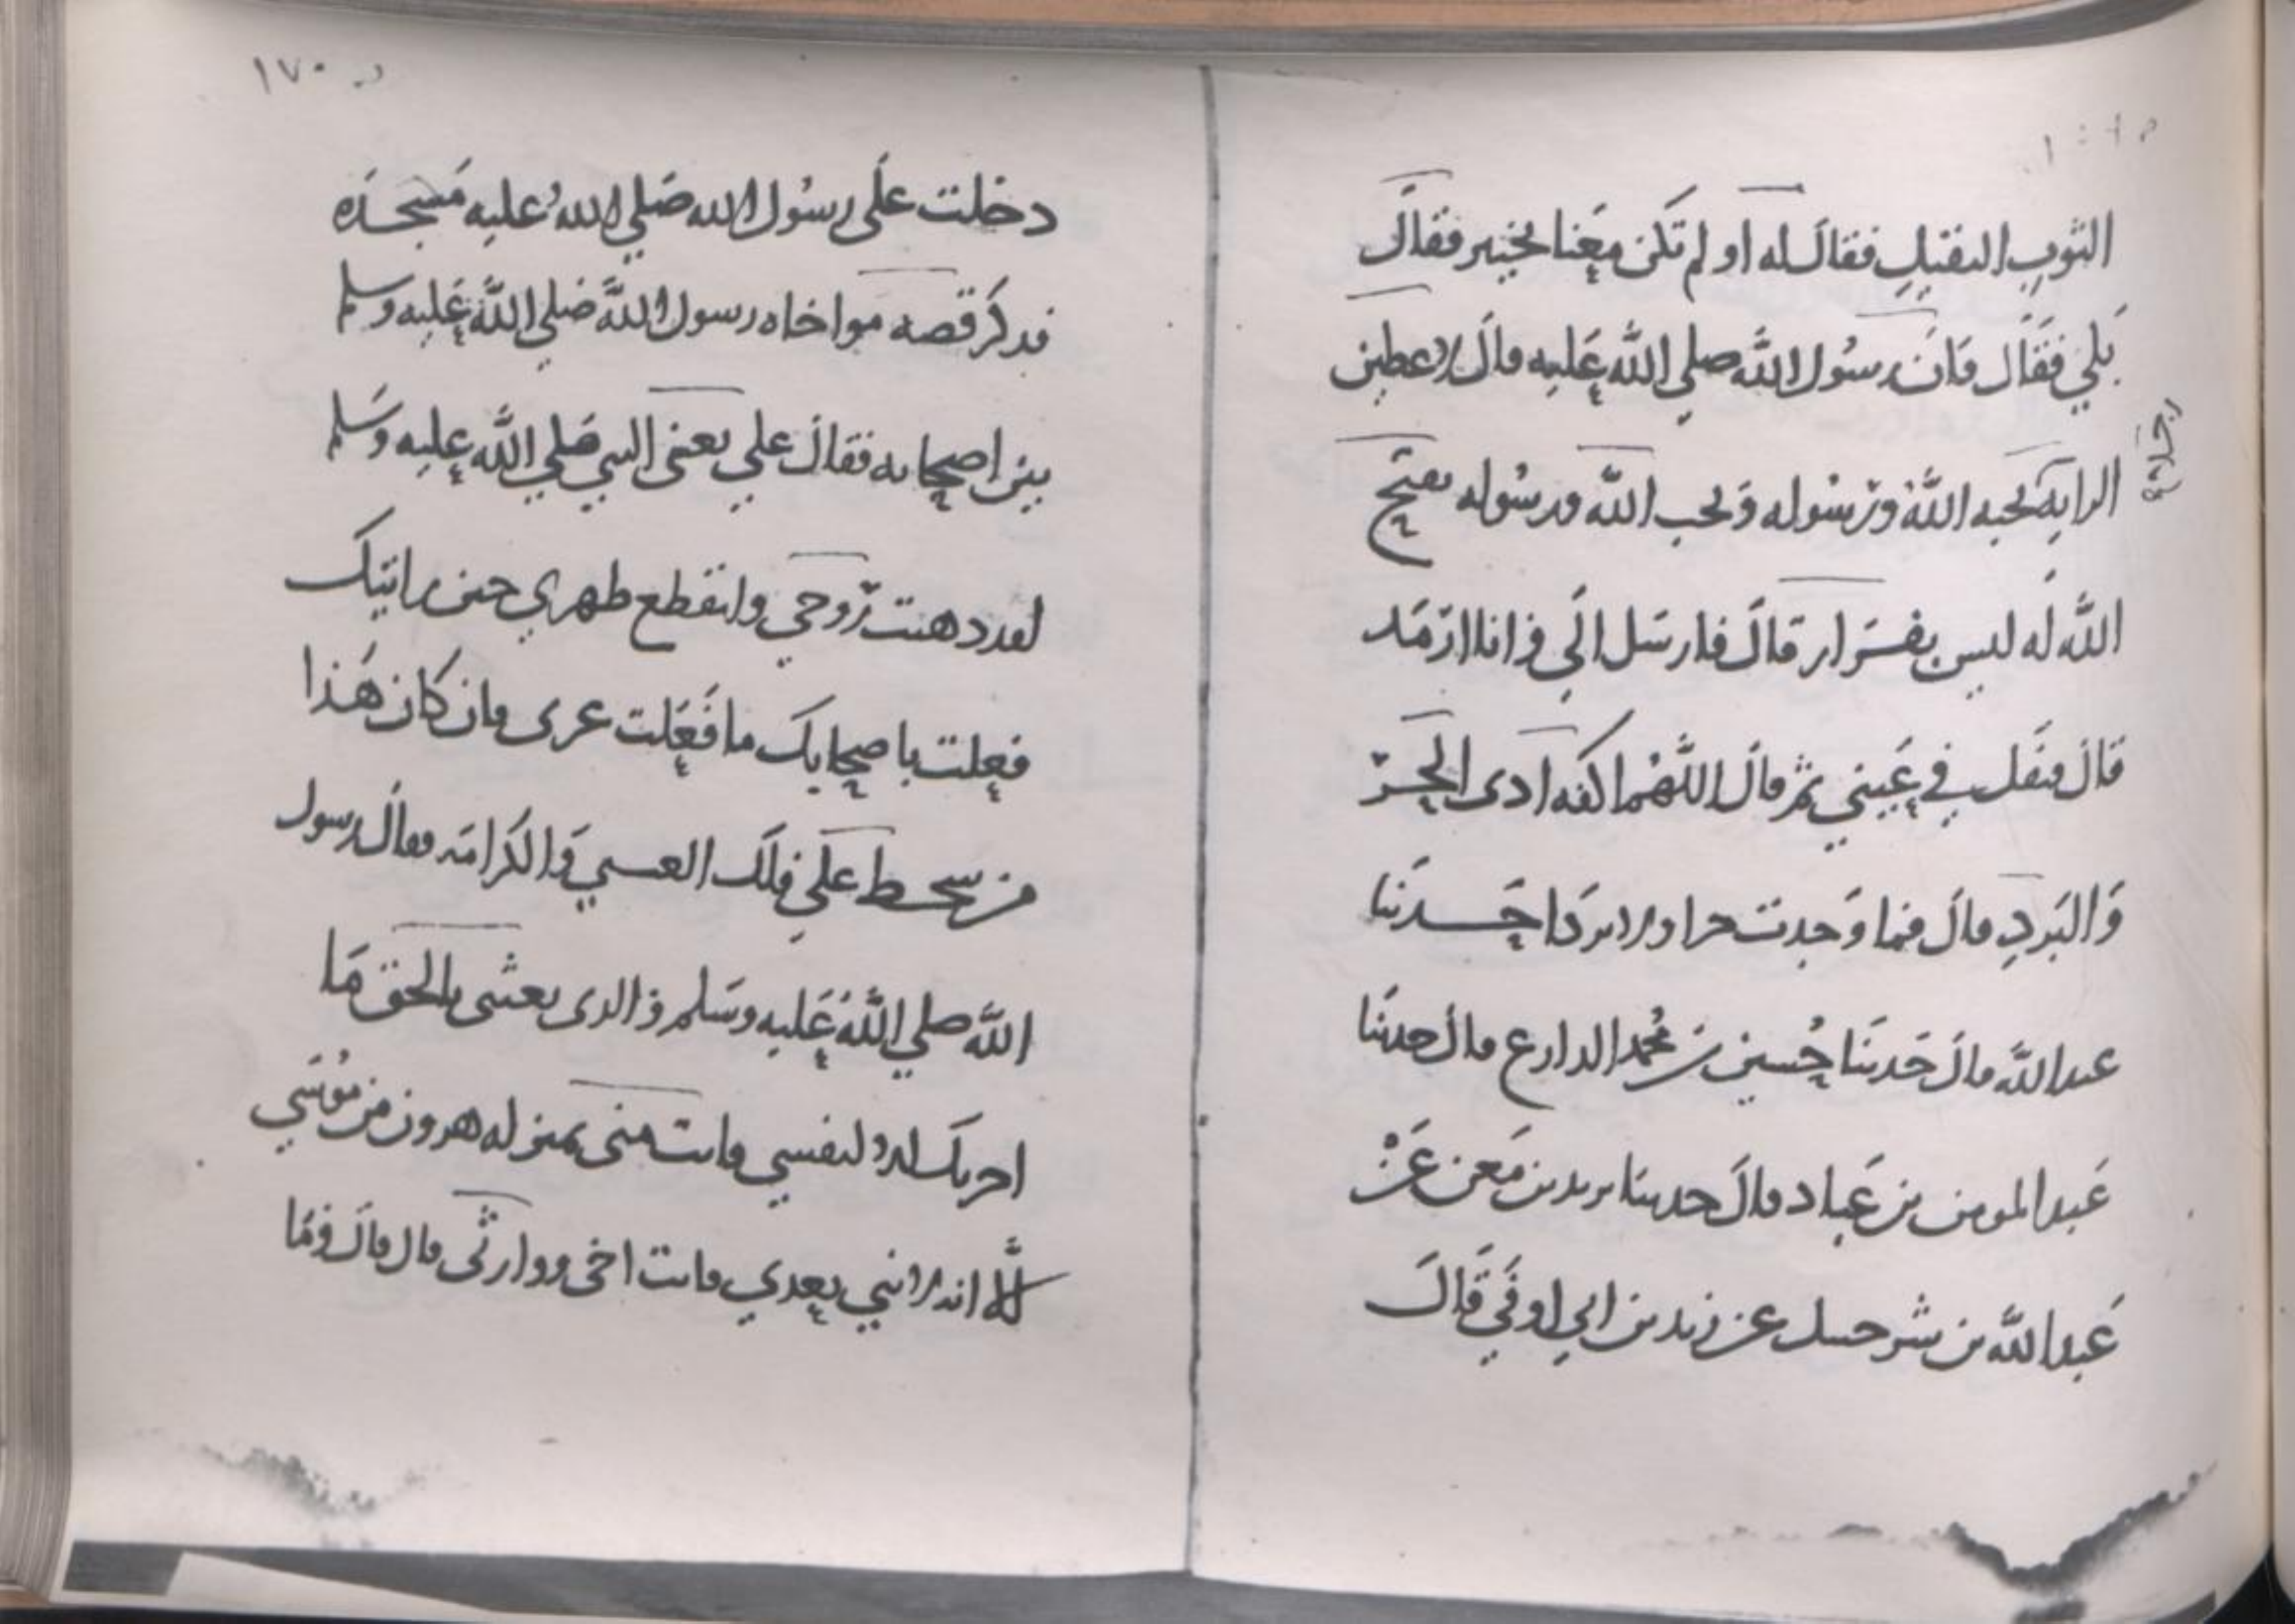 الثوب الثقيل فقال له او لم تكن معنا بخيبر فقال
بلي فقال فان رسول الله صلي الله عليه قال لاعطين
رجلا صح
الراية يحبه الله ورسوله ويحب الله ورسوله يفتح
الله له ليس بفرار قال فارسل الي وانا ارمد
قال فتفل في عيني ثم قال اللهم اكفه اذى الحر
والبرد قال فما وجدت حرا ولا بردا حدثنا
عبد الله قال حدثنا حسين بن محمد الذارع قال حدثنا
عبد المومن بن عباد قال حدثنا يزيد بن معن عن
عبد الله بن شرحبيل عن زيد بن ابي اوفي قال
١٧٠
دخلت على رسول الله صلي الله عليه مسجده
فذكر قصه مواخاه رسول الله صلي الله عليه وسلم
بين اصحابه فقال علي يعني النبي صلي الله عليه وسلم
لقد ذهبت روحي وانقطع ظهري حين رايتك
فعلت باصحابك ما فعلت غيرى فان كان هذا
من سخط علي فلك العتبي والكرامة فقال رسول
الله صلي الله عليه وسلم والذى بعثنى بالحق ما
اخرتك الا لنفسي فانت منى بمنزله هرون من موسي
الا انه لا نبي بعدي وانت اخى ووارثى قال قال وما